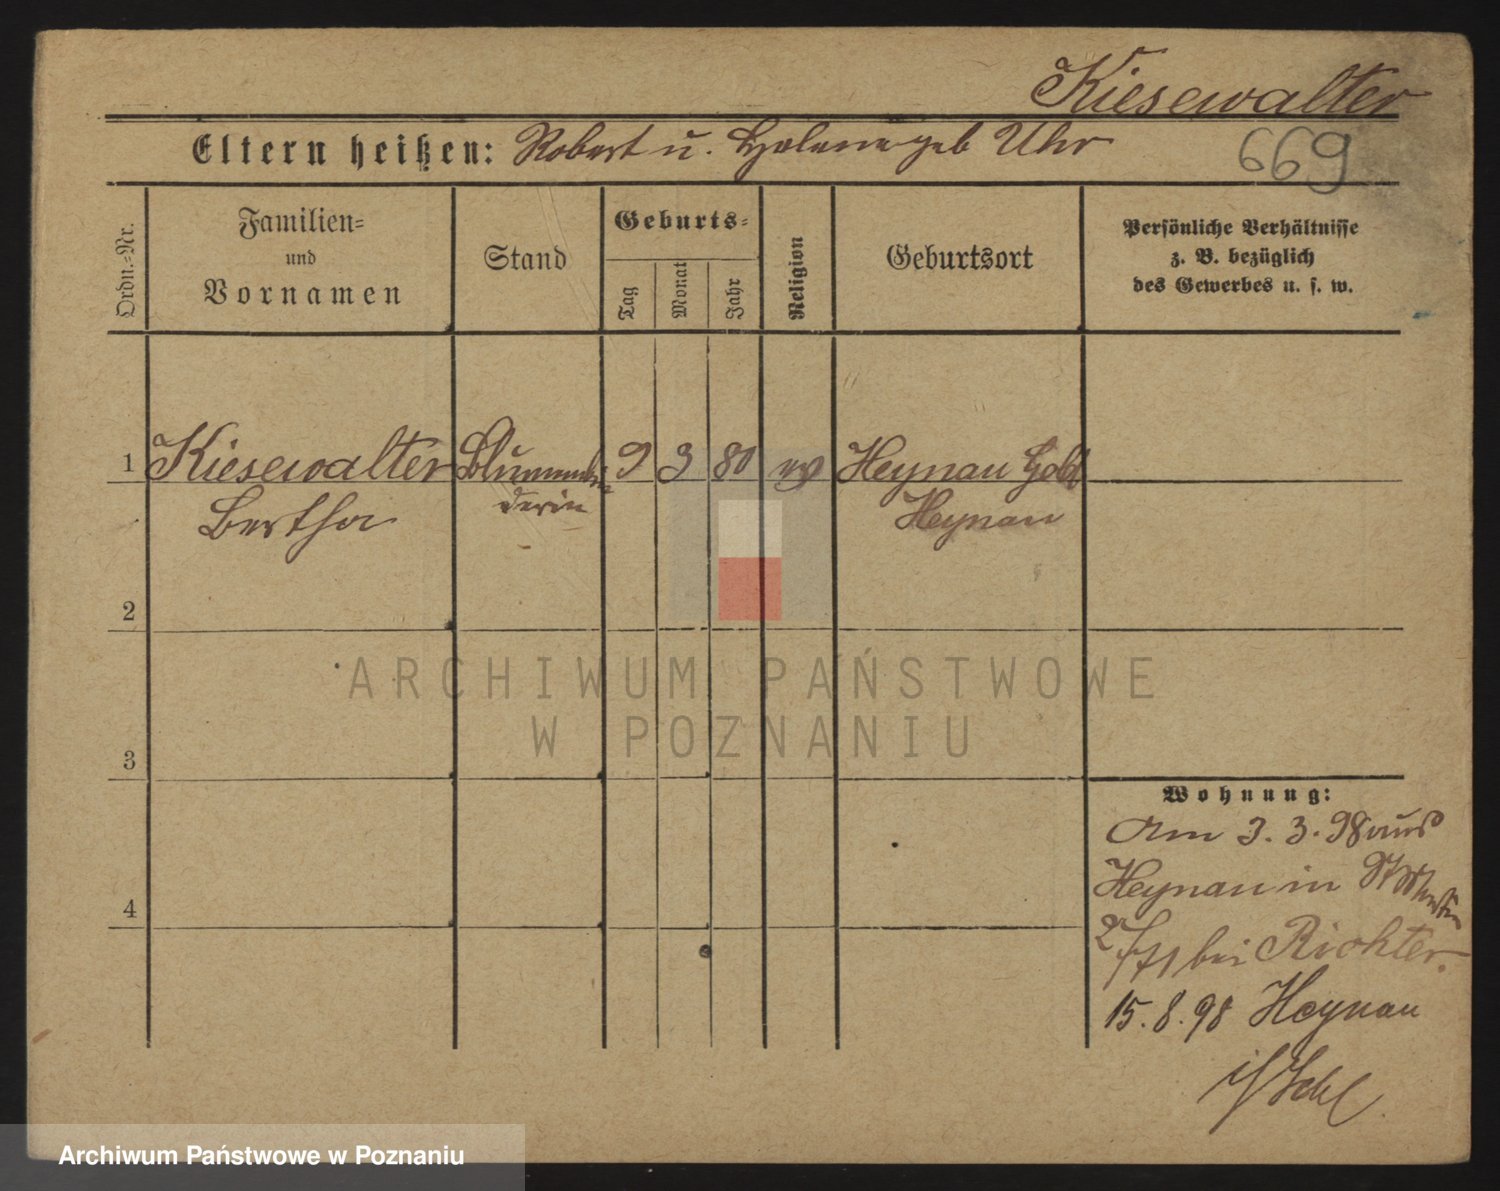 Kiesewalter
Eltern heißen: Robert u. Helene geb Uhr
669
Ordn.-Nr.
Familien-
und
Vornamen
Stand
Geburts-
Tag
Monat
Jahr
Religion
Geburtsort
Persönliche Verhältnisse
z. B. bezüglich
des Gewerbes u. s. w.
1 Kiesewalter Blumenbin 9 3 80 ev Heynau Gold
Bertha derin Heynau
2
3
4
Wohnung:
Am 3. 3. 98 aus
Heynau in
bei Richter.
15. 8. 98 Heynau
ARCHIWUM PAŃSTWOWE
W POZNANIU
Archiwum Państwowe w Poznaniu